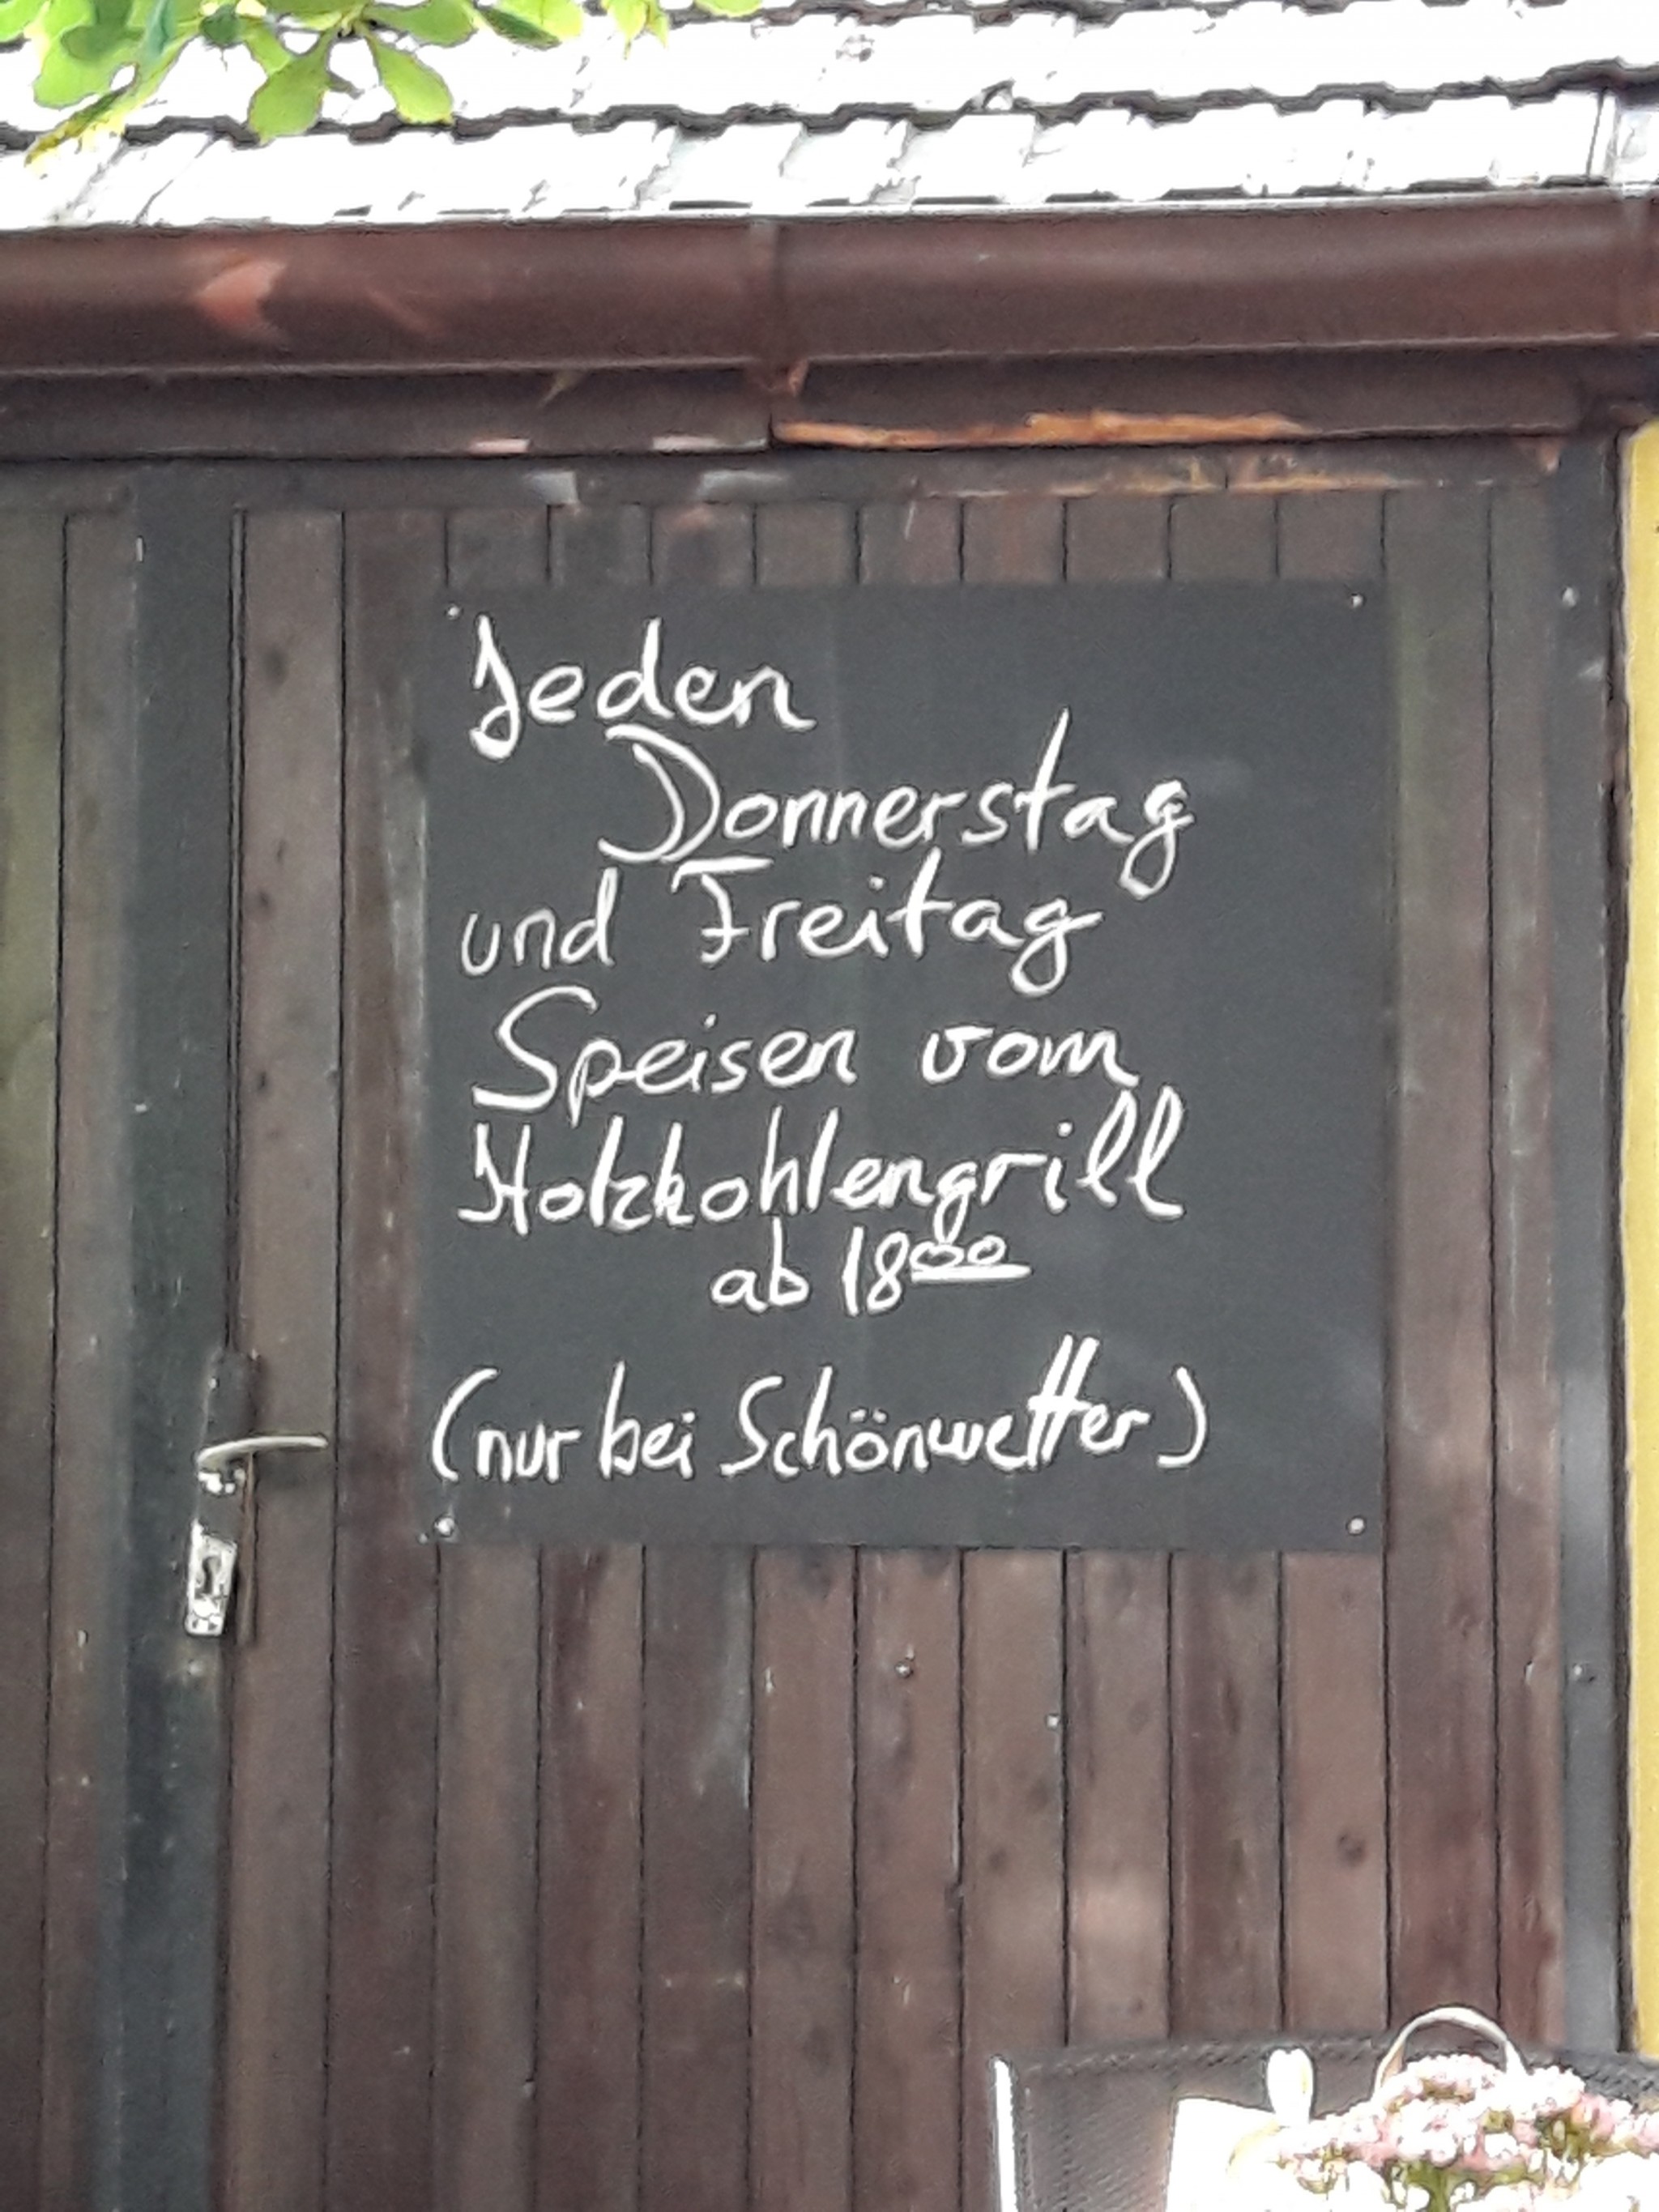 Jeden
Donnerstag
und Freitag
Speisen vom
Holzkohlengrill
ab 18⁰⁰
(nur bei Schönwetter)